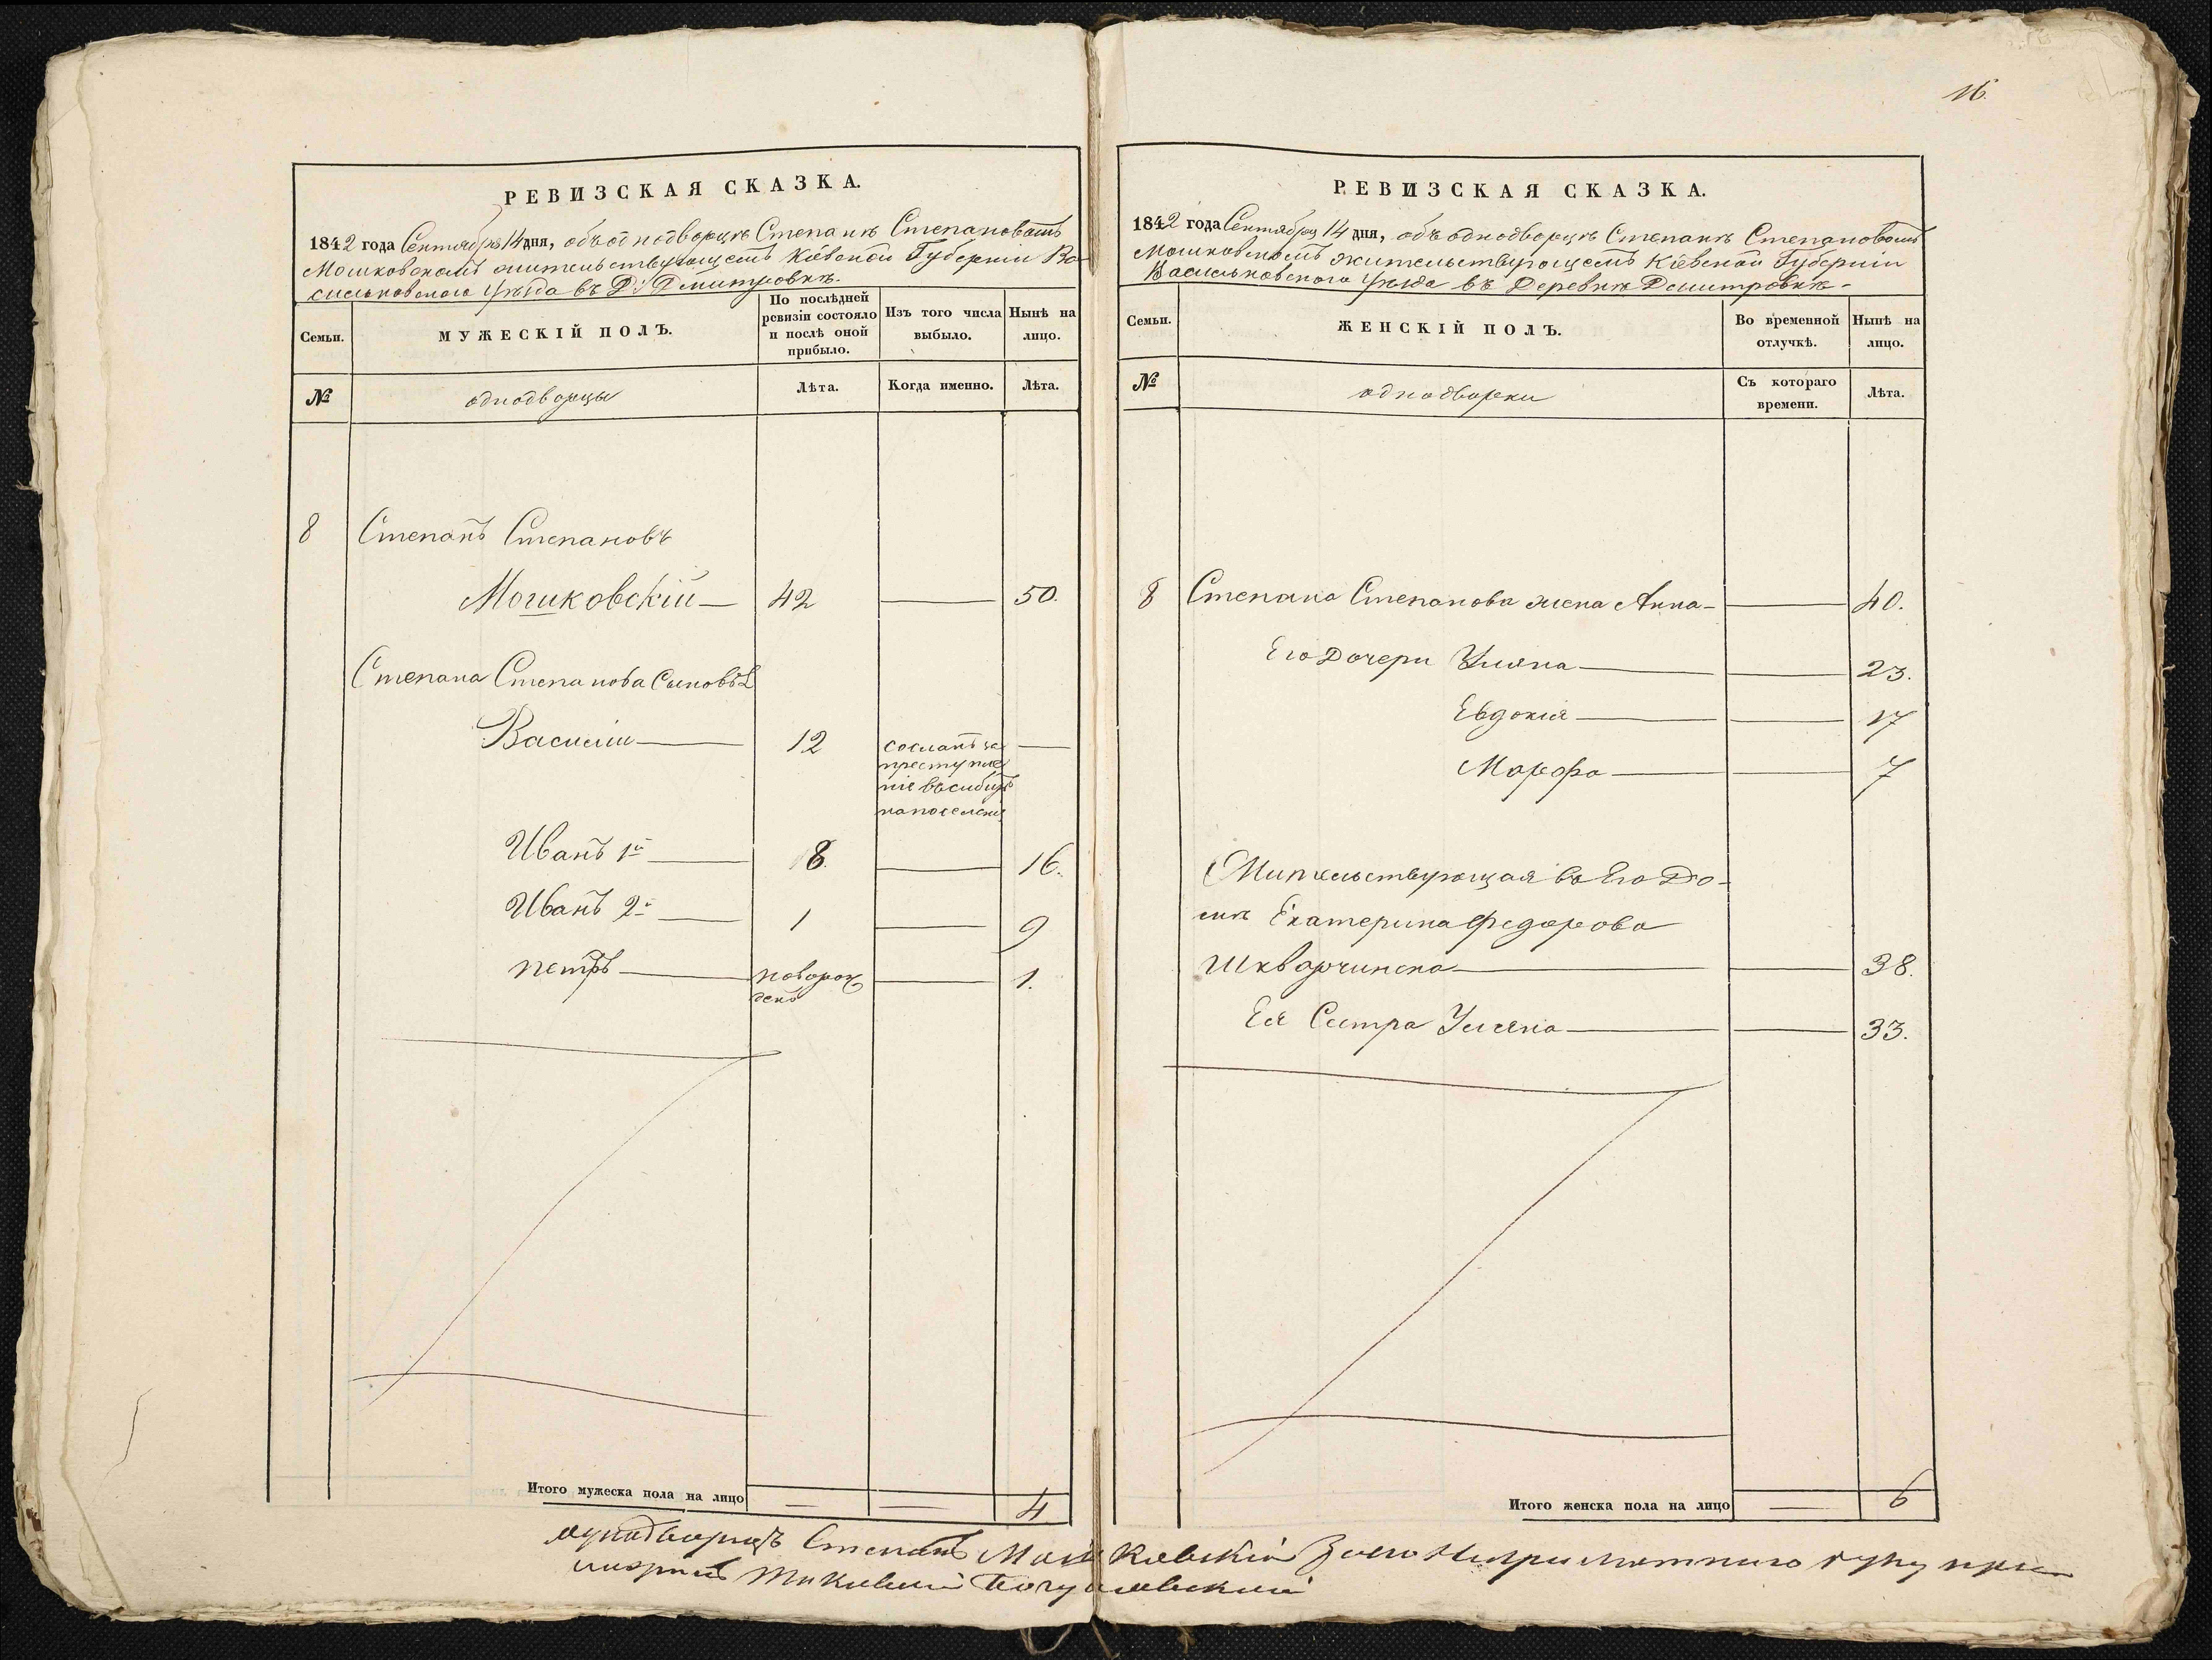 16.
РЕВИЗСКАЯ СКАЗКА.
1842 года Сентября 14 дня, объ однодворцѣ Степанѣ Степановомъ
Мошковскомъ жительствующемъ Кіевской Губерніи Ва-
сильковского Уѣзда въ Д: Дмитровкѣ.
Семьи.
МУЖЕСКІЙ ПОЛЪ.
По послѣдней
ревизіи состояло
и послѣ оной
прибыло.
Изъ того числа
выбыло.
Нынѣ на
лицо.
№
однодворцы
Лѣта.
Когда именно.
Лѣта.
8 Степанъ Степановъ
Мошковскій — 42 — 50.
Степана Степанова сыновья
Василій — 12 сосланъ за —
преступле
ніе въ сибирь
на поселеніе
Иванъ 1й — 8. — 16.
Иванъ 2й — 1 — 9
петръ — новорож — 1.
денъ
Итого мужеска пола на лицо — — 4
РЕВИЗСКАЯ СКАЗКА.
1842 года Сентября 14 дня, объ однодворцѣ Степанѣ Степановомъ
Мошковскомъ жительствующемъ Кіевской Губерніи
Васильковского Уѣзда въ Деревнѣ Дмитровкѣ -
Семьи.
ЖЕНСКІЙ ПОЛЪ.
Во временной
отлучкѣ.
Нынѣ на
лицо.
№
однодворки
Съ котораго
времени.
Лѣта.
8 Степана Степанова жена Анна — — 40.
Его Дочери Уляна — — 23.
Евдокія — — 17
Марфа — — 7
Жительствующая въ Его До-
мѣ Екатерина Федорова
Шкварчинска — — 38.
Ея Сестра Уляна — — 33.
Итого женска пола на лицо — 6
Степанъ Мошковскій